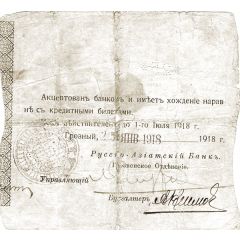 Акцептован банком и имеет хождение нарав
не с кредитными билетами.
действителен до 1-го Июля 1918 г.
Грозный, 2 ЯНВ 1918 1918 г.
Русско-Азіатскій Банкъ.
Грозненское Отделеніе.
Управляющій
Бухгалтеръ